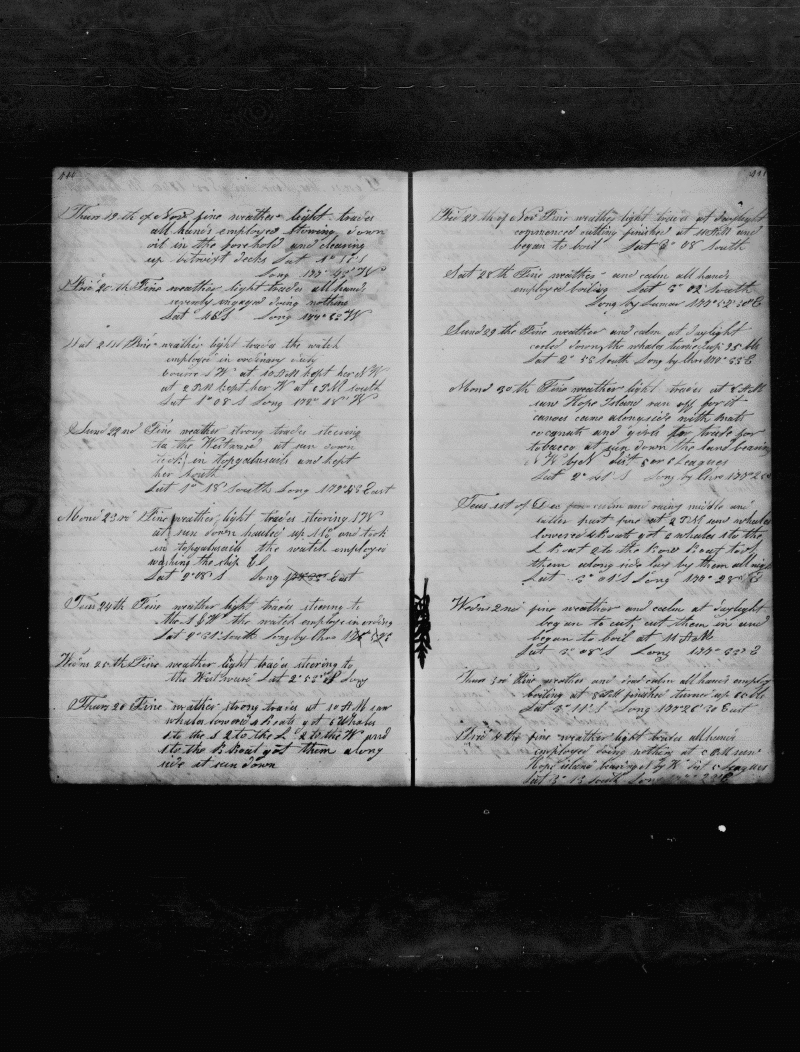 Thurs 19 th of Nov fine weather light trades
all hands employed stowing down
oil in the forehold and clearing
up betwixt decks Lat 1° 18 S
Long 177° 45 W
Frid 20 th Fine weather light trades all hands
employed doing nothing
Lat S Long W
Sat 21st Fine weather light trades the watch
employed in ordinary duty
course S W at 10 A M kept her N W
at P M kept her W at P M south
Lat 1° 08 S Long 178° 18 W
Sund 22 nd Fine weather strong trades steering
to the Westward at sun down
took in topgalnsails and kept
her South
Lat 1° 18 South Long 179° 43 East
Mond 23 rd Fine weather light trades steering
at sun down hauled up and took
in topgalnsails the watch employed
washing the ship
Lat 2° 08 S Long East
Tues 24th Fine weather light trades steering to
the S & W the watch employe in ordiny
Lat 2° 31 south Long by Chro
Wedns 25 th Fine weather light trades steering to
the Westward Lat 2° 52 Long
Thurs 26 Fine weather strong trades at 10 A M saw
whales lowered 4 Boats got 6 Whales
1 to the S 2 to the L 2 to the W and
1 to the B Boat got them along
side at sun down
441
Frid 27 th of Nov Fine weather light trades at Daylight
commenced cutting finished at 11 A M and
began to boil Lat 3° 08 South
Sat 28 th Fine weather and calm all hands
employed boiling Lat 3° 02 South
Long by Lunar 177° 52 30 E
Sund 29 the Fine weather and calm at daylight
cooled down the whales turned up 75 bbls
Lat 2° 55 South Long by Chro 177° 55 E
Mond 30 th Fine weather light trades at A M
saw Hope Island ran off for it
canoes came alongside with hats
cocanuts and girls for trade for
tobacco at sun down the land bearing
W by N dist 5 or 6 Leagues
Lat 2° 41 S Long by Chro 177°
Teus 1st of Dec calm and rainy middle and
latter part fine at 2 P M saw whales
lowered 4 Boats got whales 1 to the
L Boat 2 to the Bow Boat took
them along side lay by them all night
Lat 3° 01 S Long 177° 28 E
Wedns 2nd fine weather and calm at Daylight
began to cut, cut them in and
began to boil at 11 A M
Lat 3° 08 S Long 177° 33 E
Thurs 3rd Fine weather and calm all hands employ
boiling at 8 P M finished turned up
Lat 3° 11 S Long 177° 26 30 East
Frid 4 the fine weather light trades all hands
employed doing nothing at 6 P M saw
Hope island bearing N by W dist Leagues
Lat 3° 13 South Long